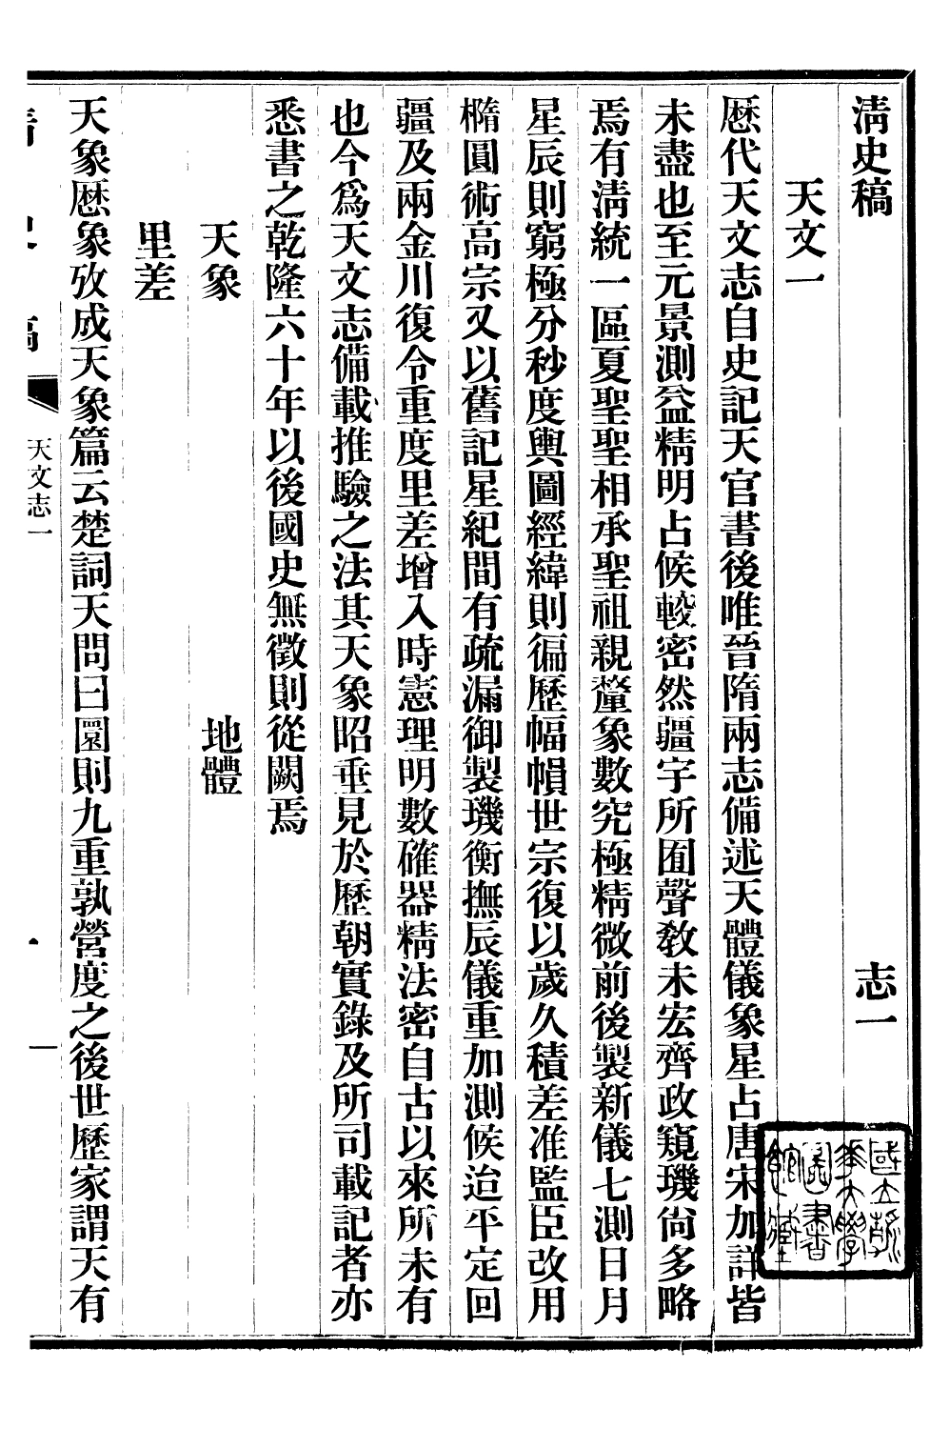 清史稿　志一
天文一
歷代天文志自史記天官書後唯晉隋兩志備述天體儀象星占唐宋加詳皆
未盡也至元景測益精明占候較密然疆宇所囿聲敎未宏齊政窺璣尙多略
焉有淸統一區夏聖聖相承聖祖親釐象數究極精微前後製新儀七測日月
星辰則窮極分秒度輿圖經緯則徧歷幅幀世宗復以歲久積差准監臣改用
橢圓術高宗又以舊記星紀間有疏漏御製璣衡撫辰儀重加測候迨平定回
疆及兩金川復令重度里差增入時憲理明數確器精法密自古以來所未有
也今爲天文志備載推驗之法其天象昭垂見於歷朝實錄及所司載記者亦
悉書之乾隆六十年以後國史無徵則從闕焉
天象　地體
里差
天象歷象攷成天象篇云楚詞天問曰圜則九重孰營度之後世歷家謂天有
清史稿　天文志一　一
國立清華大學圖書館藏